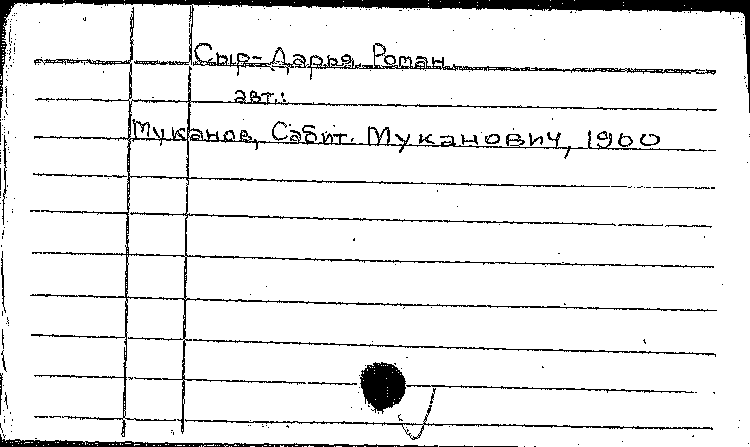 Сыр-Дарья. Роман.
авт.:
Муканов, Сабит. Муканович, 1900